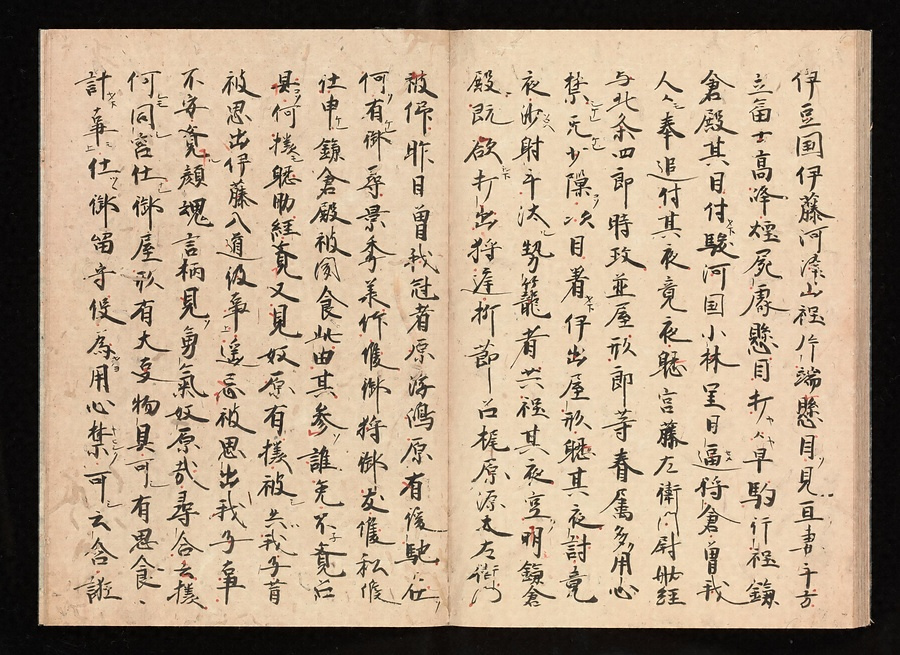 伊豆国伊藤河津山程片端懸目見亘妻平方
立富士高峰煙死慮懸目打早駒行程鎌
倉殿其日付駿河国小林里日逼狩倉曽我
人々奉追付其夜竟夜聴宮藤左衛門尉助経
与北条四郎時政並屋形郎等眷属多用心
禁无少隙次日着伊出屋形聴其夜討竟
夜沙財千法勢籠者共程其夜空明鎌倉
殿既欲打出狩庭折節召梶原源太左衛門
被仰昨日曽我冠者原浮鴻原有後馳在
何有御尋景季義作候御狩御友候私候
仕申鎌倉殿被聞食此由其参誰免不覚召
具何様聴助経覚又見奴原有様被共我子旨
被思出伊藤入道彼事遥忘被思出我子事
不安覚顔魂言柄見勇気奴原哉尋合云様
何同宮仕御屋形有大事物具可有思食
計事仕御留守役為用心禁可云含誑